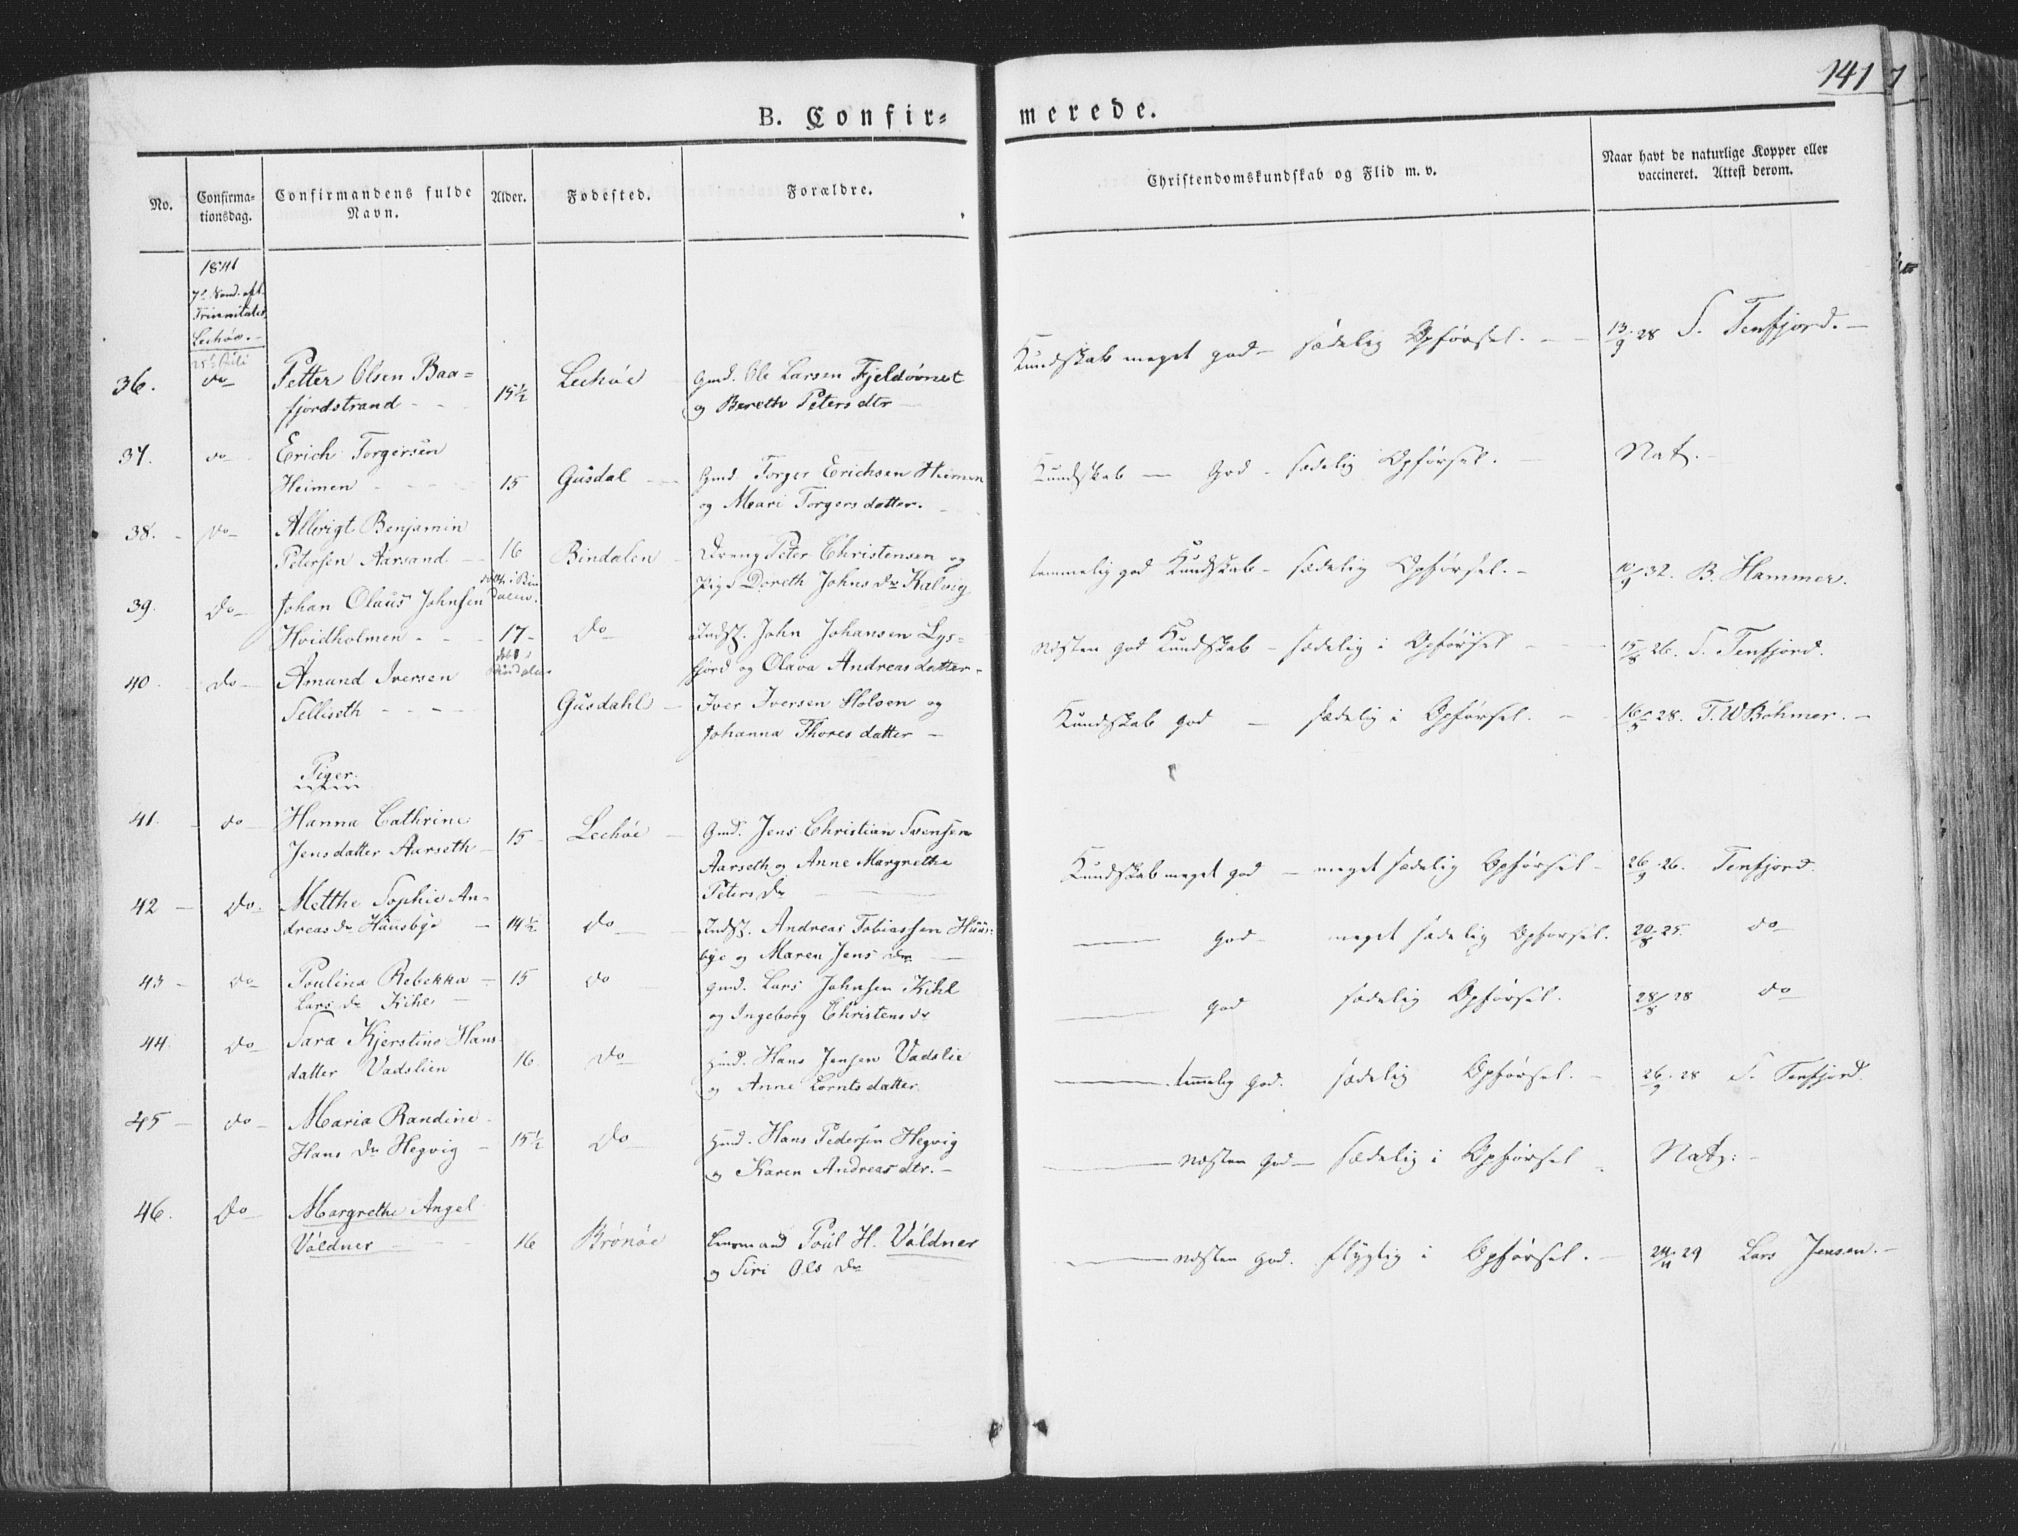 141
B. Confir-
merede.
No.
Confirma-
tionsdag.
Confirmandens fulde
Navn.
Alder.
Fødested.
Forældre.
Christendomskundskab og Flid m. v.
Naar havt de naturlige Kopper eller
vaccineret. Attest derom.
1841
7de Sønd. eft.
Trinitatis
Leehøe.
25de Juli
36. do Petter Olsen Baa-
fjordstrand 15½ Leehøe Gmd. Ole Larsen Fjeldövnet
og Berethe Petersdtr
Kundskab meget god - sædelig Opførsel. 13/9 28 S. Tenfjord.
37. do Erich Torgersen
Heimen 15 Gusdal Gmd Torger Erichsen Heimen
og Mari Torgersdatter.
Kundskab — God - sædelig Opførsel. Nat.
38. do Allerigt Benjamin
Petersen Aarsand 16 Bindalen Dreng Peter Christensen og
Pige Doreth Johns Dr Kalvig
temmelig god Kundskab - sædelig Opførsel. 10/9 32. B. Hammer.
39. do Johan Olaus Johnsen
Hvidholmen 17 do Indst. John Johansen Lys-
fjord og Olava Andreasdatter
næsten god Kundskab - sædelig i Opførsel 15/8 26. S. Tenfjord.
40 do Amund Iversen
Selliseth Gusdahl Iver Iversen Holsen og
Johanna Thoresdatter
Kundskab god — sædelig i Opførsel. 16/5 28. T. W Bøhmer.
Piger.
41. do Hanna Cathrine
Jensdatter Aarseth 15 Leehøe Gmd. Jens Christian Svensen
Aarseth og Anne Margrethe
Peters Dr
Kundskab meget god - meget sædelig Opførsel 26/9 26. Tenfjord.
42 do Metthe Sophie An-
dreas Dr Huusbye 14½ do Indst. Andreas Tobiassen Huus-
bye og Maren Jens Dr
— god - meget sædelig Opførsel. 20/8 25. do
43 do Poulina Rebekka
Lars Dr Kihl 15 do Gmd. Lars Johnsen Kihl
og Ingeborg Christens Dr
— god sædelig Opførsel. 28/8 28 do
44. do Sara Kjerstine Hans
datter Vadslien 16 do Hmd. Hans Jensen Vadslie
og Anne Lorntsdatter.
— temmelig god. sædelig Opførsel. 26/9 28 S. Tenfjord.
45 do Maria Randine
Hans Dr Hegvig 15½ do Hmd. Hans Pedersen Hegvig
og Karen Andreasdtr.
— næsten god - sædelig i Opførsel Nat:
46. do Margrethe Angel
Völdner 16 Brönöe Leensmand Poul H. Völdner
og Siri Ols Dr
— næsten god. flygtig i Opførsel. 24/11 29 Lars Jensen.